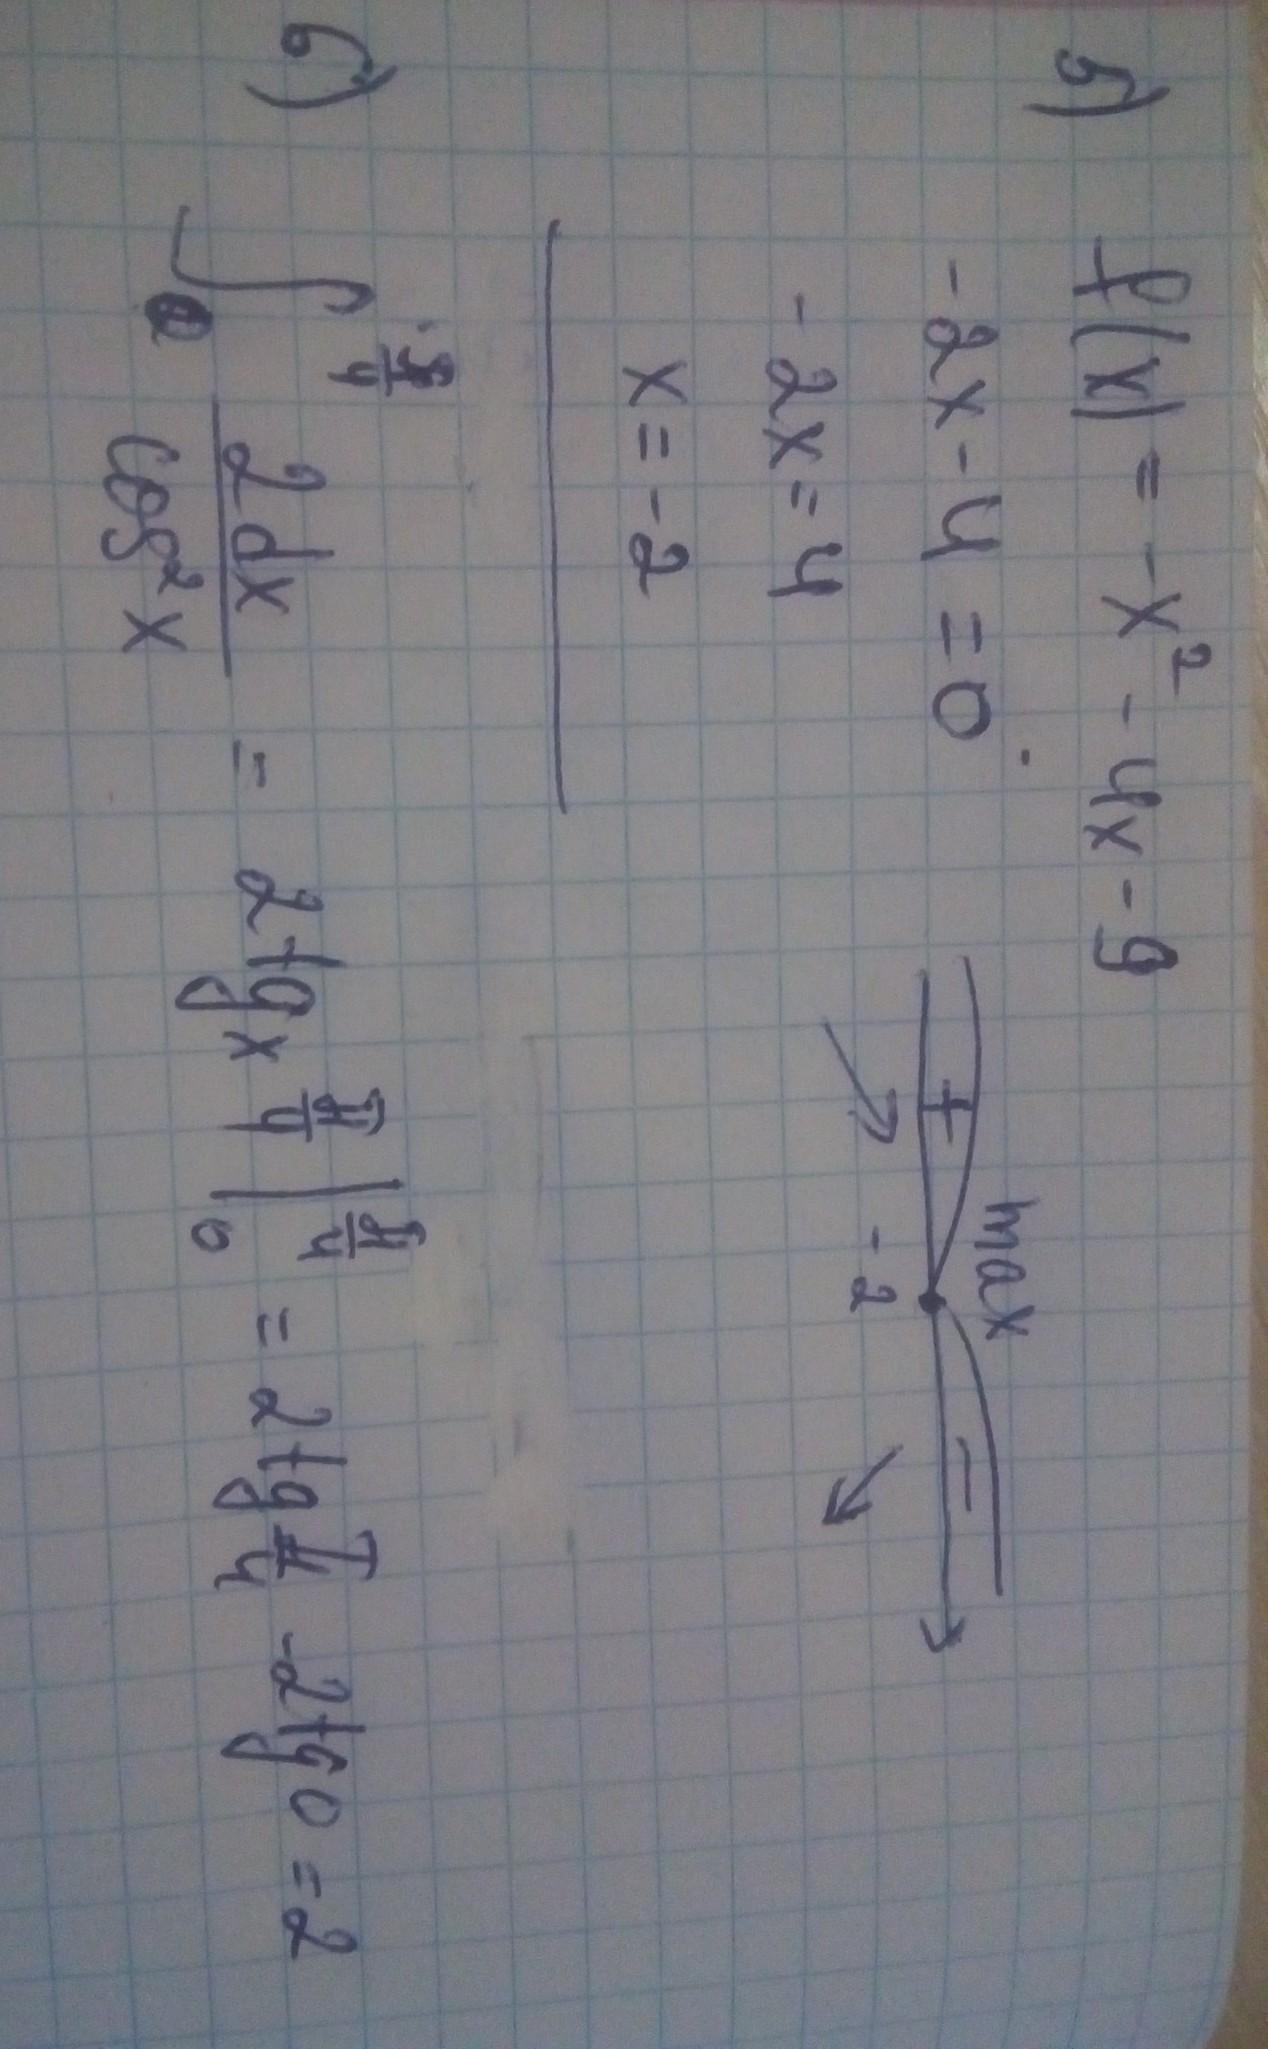 5) f(x) = -x² - 4x - 9
-2x - 4 = 0
-2x = 4
x = -2
max
+ -
-2
6) ∫₀^(π/4) 2dx/cos²x = 2tgx π/4 |₀^(π/4) = 2tg π/4 - 2tg0 = 2